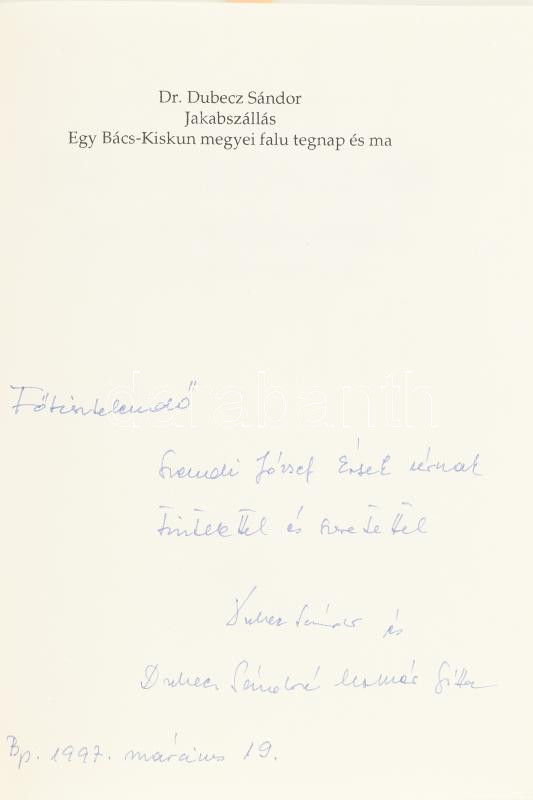 Dr. Dubecz Sándor
Jakabszállás
Egy Bács-Kiskun megyei falu tegnap és ma
darabanth
Főtisztelendő
Szendi József Érsek úrnak
tisztelettel és szeretettel
Dubecz Sándor és
Dubecz Sándorné Gitta
Bp. 1997. március 19.